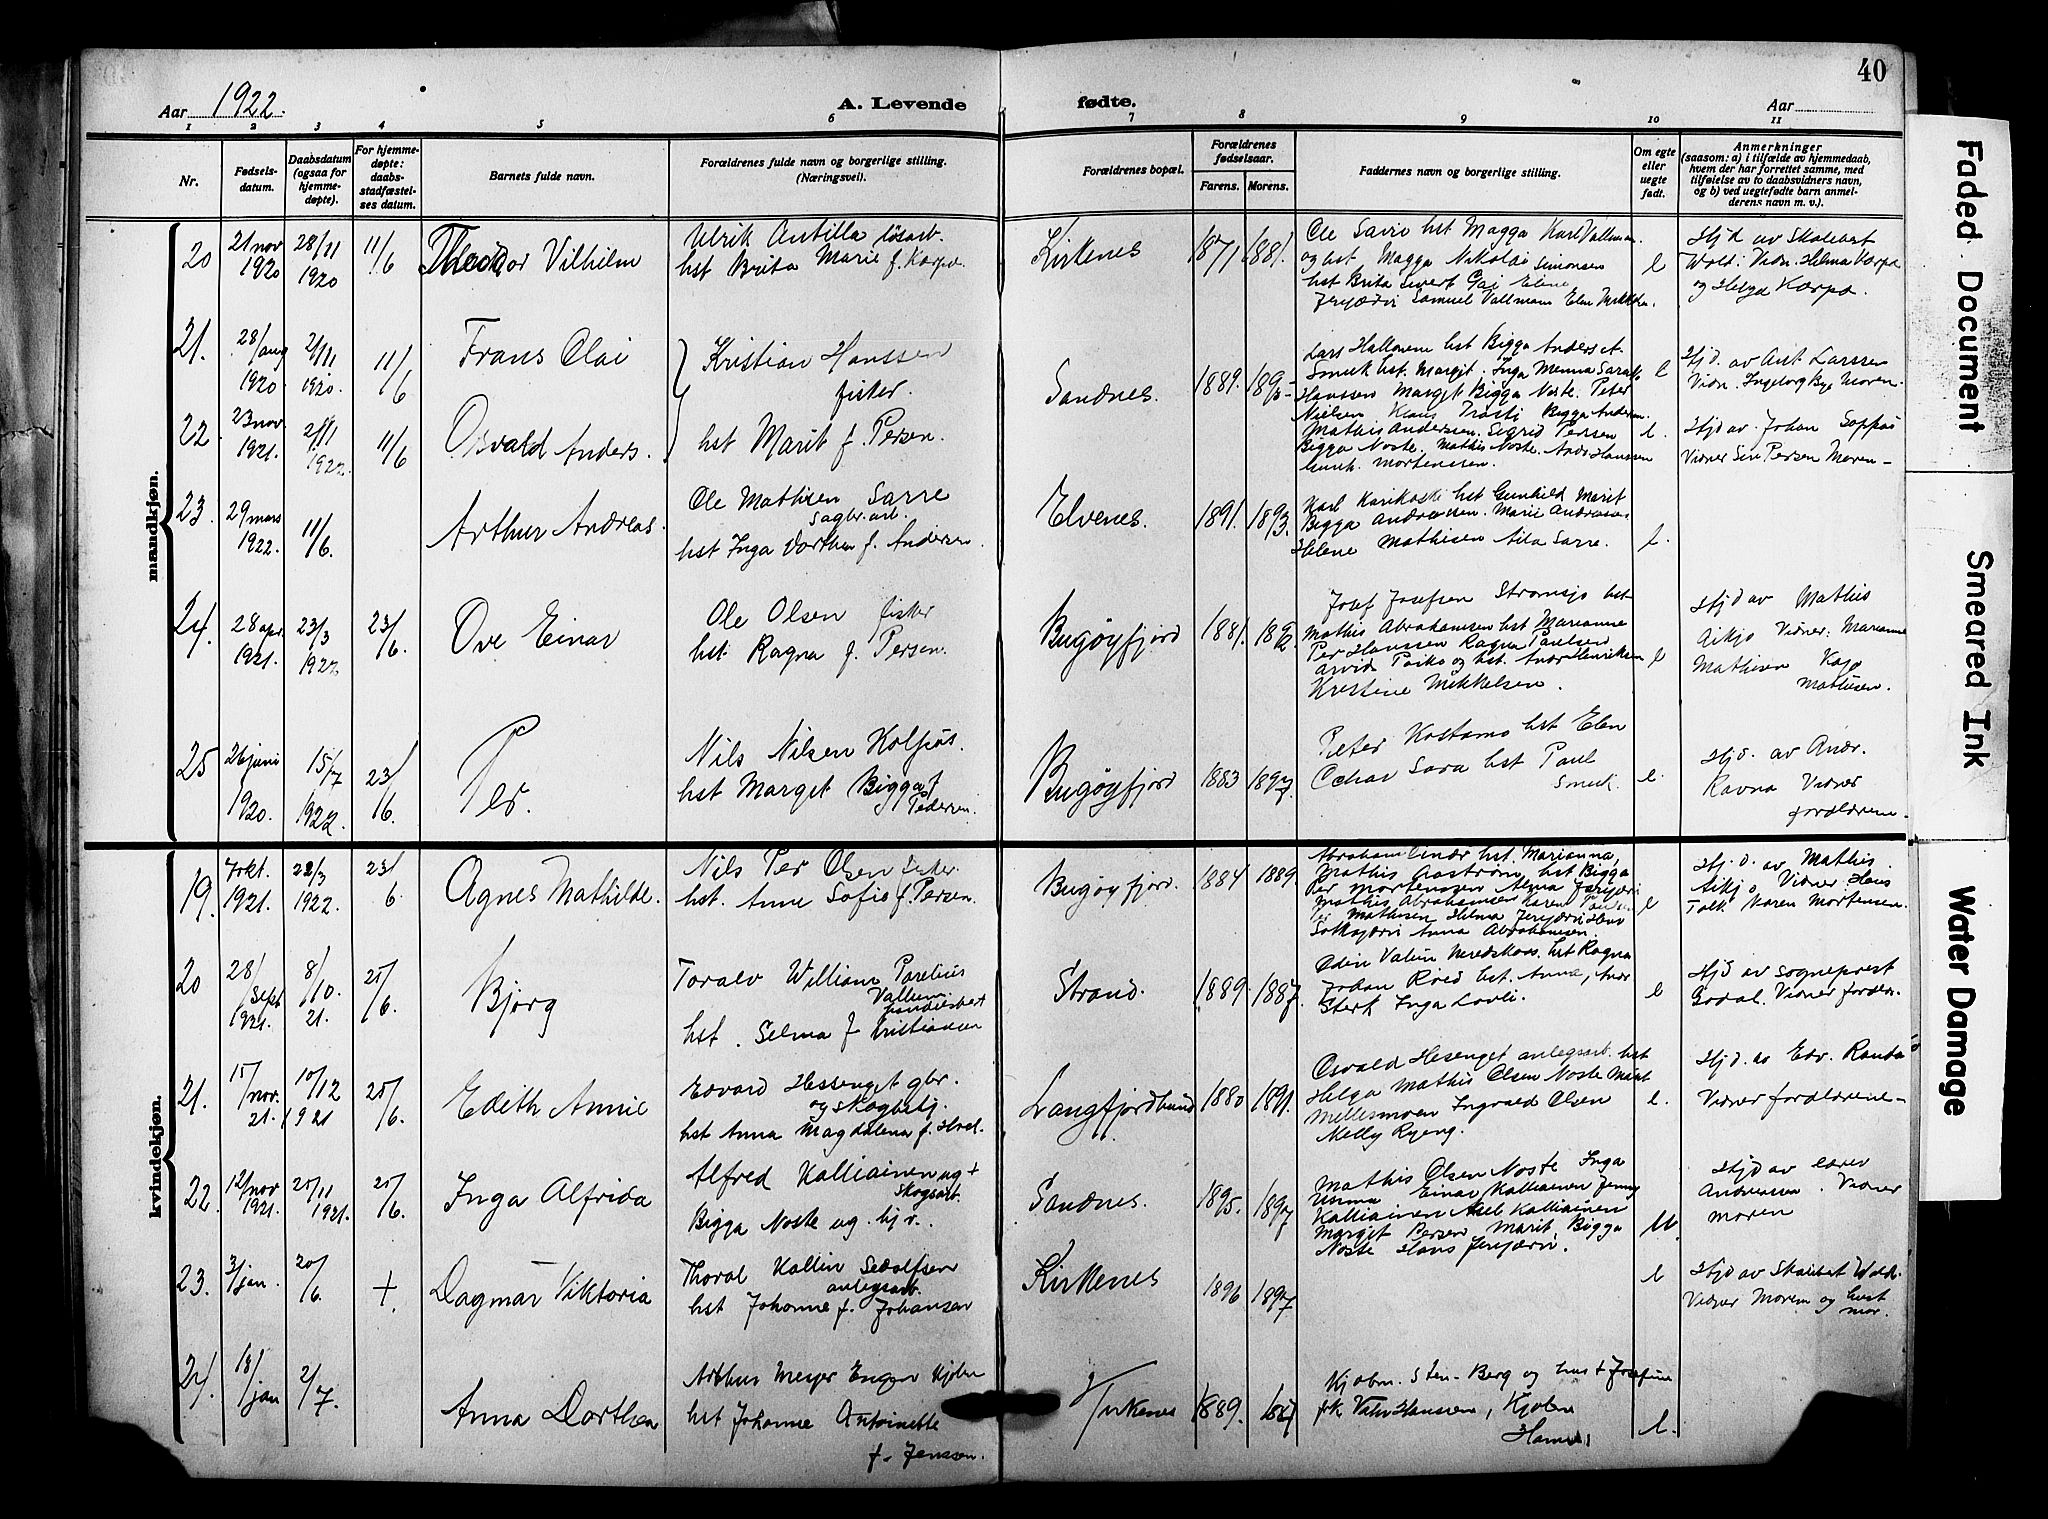 40
Aar 1922.
A. Levende fødte.
Aar
1 2 3 4 5 6 7 8 9 10 11
Nr.
Fødsels-
datum.
Daabsdatum
(ogsaa for
hjemme-
døpte).
For hjemme-
døpte:
daabs-
stadfæstel-
ses datum.
Barnets fulde navn.
Forældrenes fulde navn og borgerlige stilling.
(Næringsvei).
Forældrenes bopæl.
Forældrenes
fødselsaar.
Farens. Morens.
Faddernes navn og borgerlige stilling.
Om egte
eller
uegte
født.
Anmerkninger
(saasom: a) i tilfælde av hjemmedaab,
hvem der har forrettet samme, med
tilføielse av to daabsvidners navn,
og b) ved uegtefødte barn anmel-
derens navn m. v.).
mandkjøn.
20
21 nov
1920
28/11
1920
11/6
Theodor Vilhelm
Ulrik Antilla løsarb.
hst Brita Marie f. Karpa
Kirkenes
1871 1881.
Ole Savio hst Magga Karl Vallman
og hst Magga Nikolai Simonsen
hst Brita Sivert Gai Elene
Jerijærvi Samuel Vallmann Elen
e
Hjd av Skolebest
Wold: Vidn. Helma Karpa
og Helga Karpa.
21.
28/aug
1920
2/11
1920.
11/6
Frans Olai
Kristian Hanssen
fisker.
hst Marit f. Persen.
Sandnes.
1889. 1895
Lars Hallonen hst Bigga Anders A.
Smuk hst. Margit. Inga Menna Sara
Hanssen Marget Bigga Noste. Peter
Nielsen Klaus Trosti Bigga Andersen
e
Hjd. av Ant Larssen
Vidn. Ingeborg Bye Moren.
22
23 nov.
1921.
2/11
1922.
11/6
Osvald Anders.
Mathis Andersen. Sigrid Persen
Bigga Noste. Mathis Noste. Anders Hanssen
Mortensen.
e.
Hjd av. Johan Soppas
Vidner Siri Persen Moren
23.
29 mars
1922.
11/6.
Arthur Andreas.
Ole Mathisen Sarre
sagbr. arb.
hst Inga Dorthea f. Andersen.
Elvenes.
1891. 1893.
Karl Karikoski hst Gunhild Marit
Bigga Andreasen. Marie Andreas
Helene Mathisen Aila Sarre.
e.
24.
28 apr.
1921.
23/3
1922
23/6
Ove Einar
Ole Olsen fisker
hst Ragna f. Persen.
Bugøyfjord
1881. 1892
Josef Josefsen Strømsjo hst
Mathis Abrahamsen hst Marianne
Per Hanssen Ragna Paulsen
Arvid Paiko og hst. Andr Henriksen
Kristine Mikkelsen.
e
Hjd av Mathis
Aikjo Vidner: Marianne
Mathisen Kajo
Mathisen.
25
26 juni
1920.
15/7
1922.
23/6.
Per.
Nils Nilsen Kolpus.
hst Marget Bigga f
Pedersen.
Bugøyfjord
1883 1897.
Peter Kostamo hst Elen
Oskar Sara hst Paul
Smuk.
e.
Hjd. av Andr.
Ravna Vidner
forældrene.
kvindekjøn.
19.
7 okt.
1921.
22/3
1922.
23/6
Agnes Mathilde.
Nils Per Olsen fisker.
hst. Anne Sofie f. Persen.
Bugøyfjord.
1884 1889.
Abraham Andr hst. Marianna,
Mathis Aastrøm hst Bigga
Per Mortenssen Alma Jerijærvi
Mathis Abrahamsen Karen
Mathisen Helma Jerijærvi Hans
Sotkajærvi Anna Abrahamsen.
e
Hjd. av Mathis
Aikjo. Vidner: Hans
Falk Karen Mortensen.
20
28/Sept
1921.
8/10.
21.
25/6.
Bjørg
Toralv William Parelius
Vallum.
handelsbest
hst. Selma f Kristiansen
Strand.
1889. 1887.
Odin Valen Meredskaas. hst Ragna
Johan Roed hst. Anna, Andr
Sterk Inga Lovli.
e
Hjd av sogneprest
Godal. Vidner forældr.
21.
15/nov.
21.
10/12
1921
25/6.
Edith Annie
Edvard Hessenget gbr.
og skogbetj.
hst Anna Magdalena f. Hval.
Langfjordbund
1880 1891.
Osvald Hesenget anlegsarb. hst
Helga Mathis Olsen Noste Marit
Mellesmoen Ingvald Olsen
Nelly Ryeng.
e.
Hjd. av Edv. Randa
Vidner forældrene
22
12/nov
1921.
25/11
1921.
25/6.
Inga Alfrida
Alfred Kalliainen ug +
Skogsarb.
Bigga Noste ug. hjv.
Sandnes.
1895. 1897
Mathis Olsen Noste Inga
Unma Einar Kalliainen Jenny
Kalliainen Axel Kalliainen
Marget Persen Marit Bigga
Noste Hans Jerijærvi.
u.
Hjd av lærer
Andreassen. Vidner
moren
23.
3/jan
20/6.
+
Dagmar Viktoria
Thoral Kallin Sedolfsen
anlegsarb.
hst Johanne f. Johansen
Kirkenes
1896 1897
e
Hjd av Skolebst Wold.
Vidner Moren og hust
mor.
24.
18/jan
2/7.
Anna Dorthea
Arthur Meyer Enger kjøbm
hst Johanne Antoinette
f. Jenssen.
Kirkenes
1889.
Kjøbm. Sten-Berg og hust Josefine
frk Valv Hanssen, Kjøbm
e.
Faded Document
Smeared Ink
Water Damage